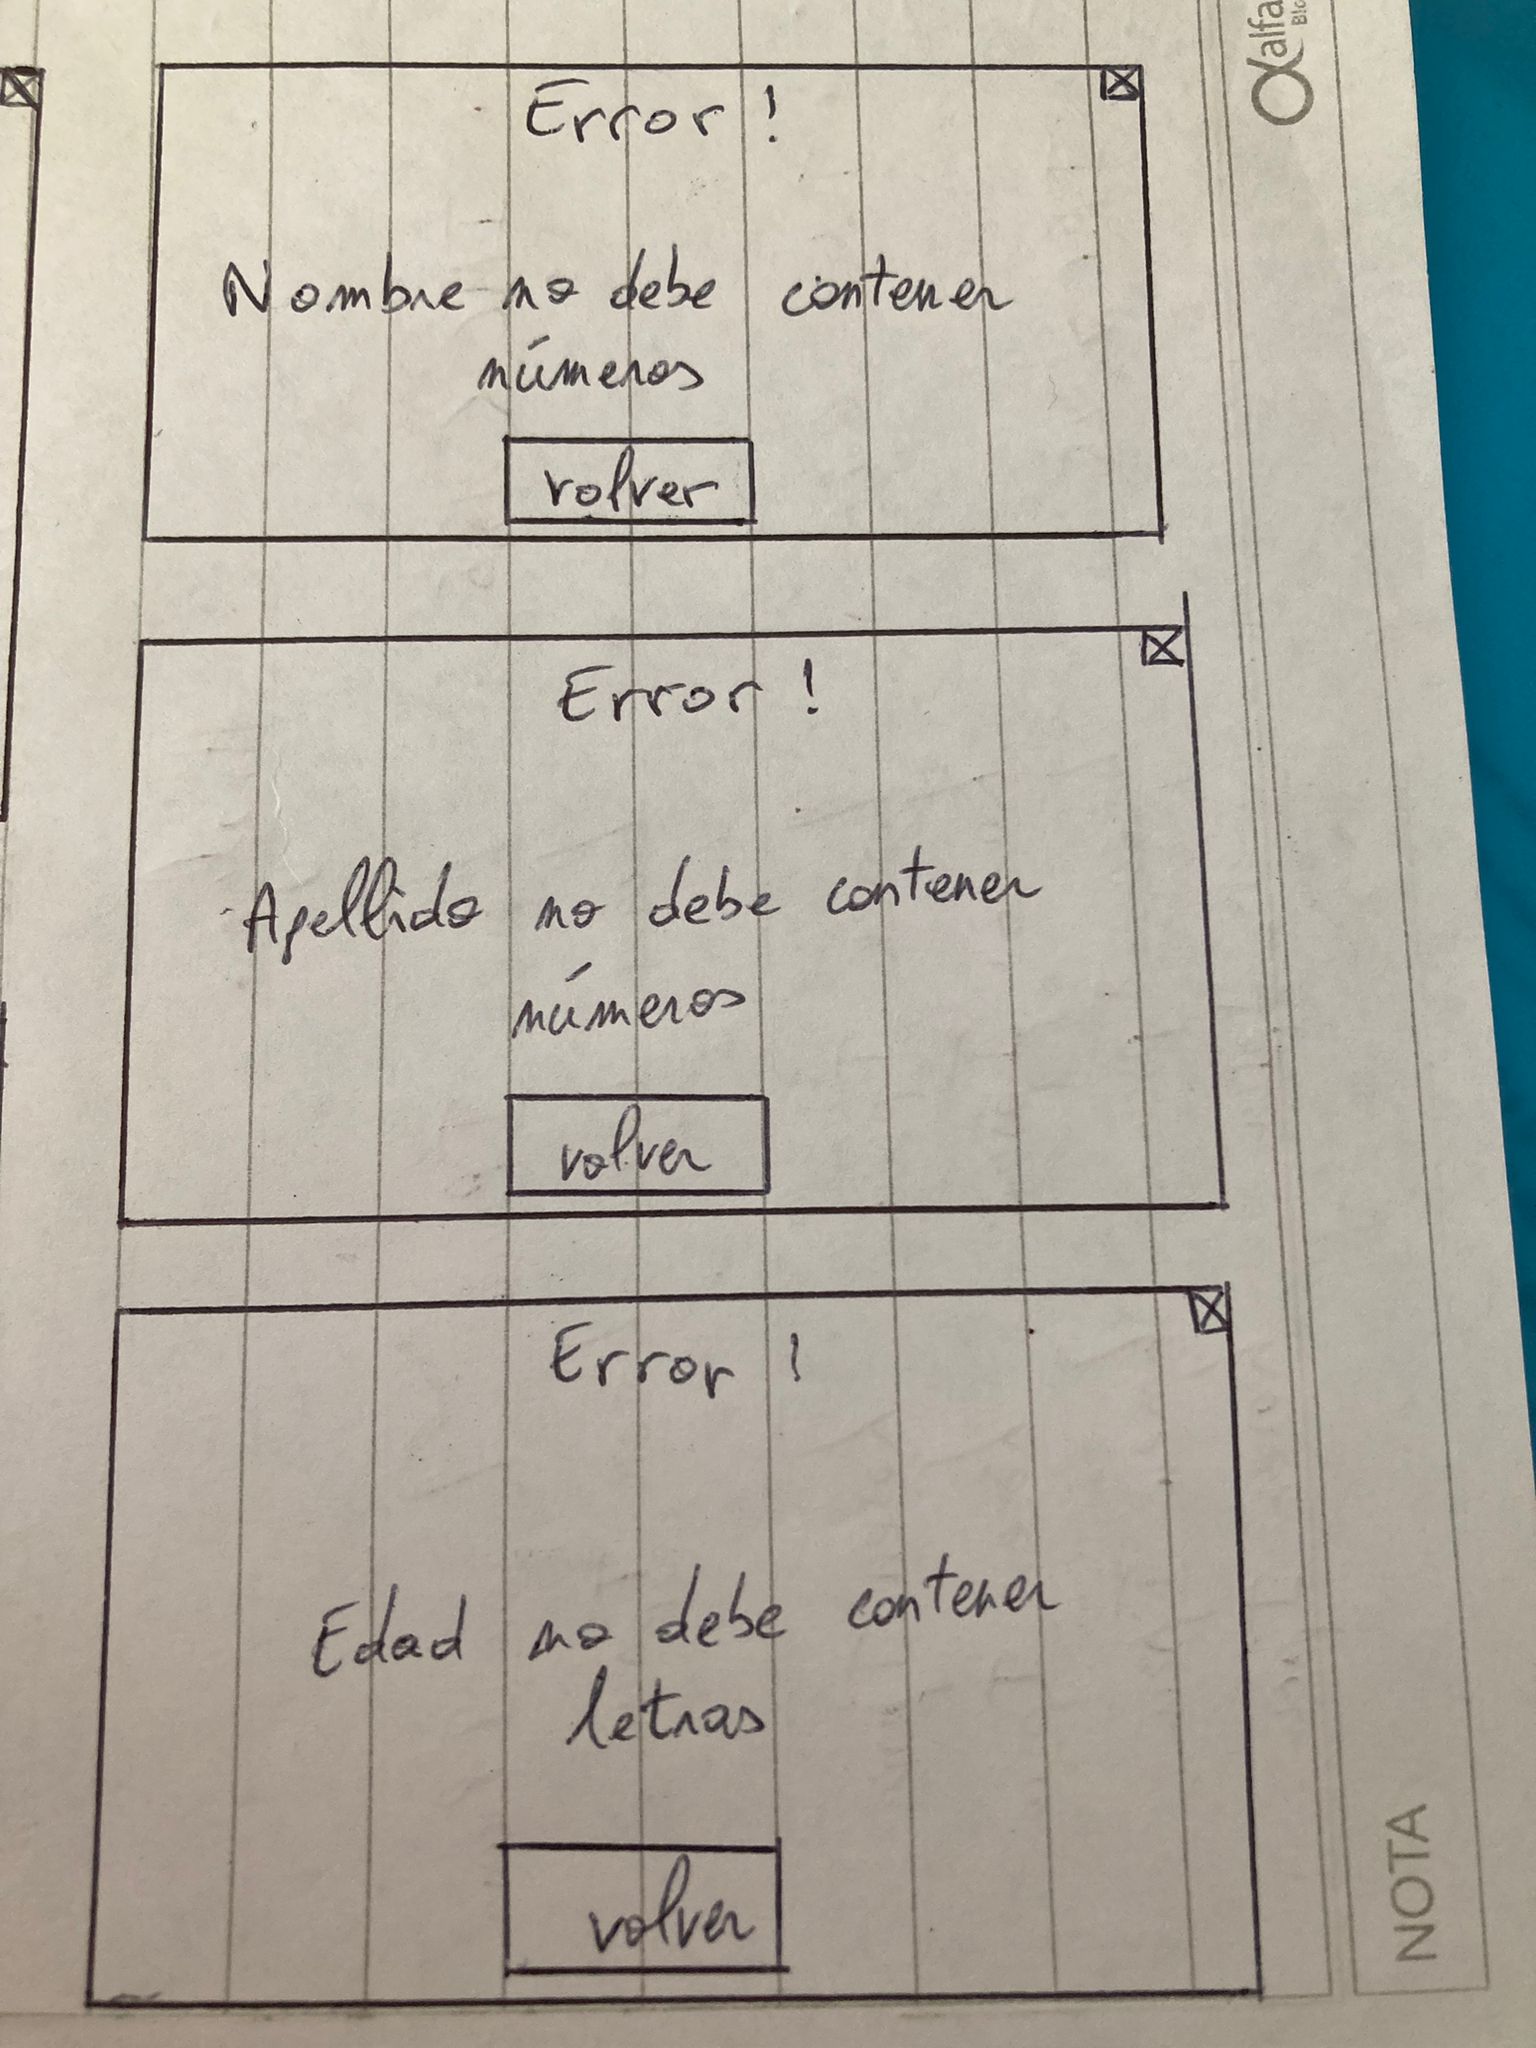 Error!
Nombre no debe contener
números
volver
Error!
Apellido no debe contener
números
volver
Error!
Edad no debe contener
letras
volver
alfa
NOTA